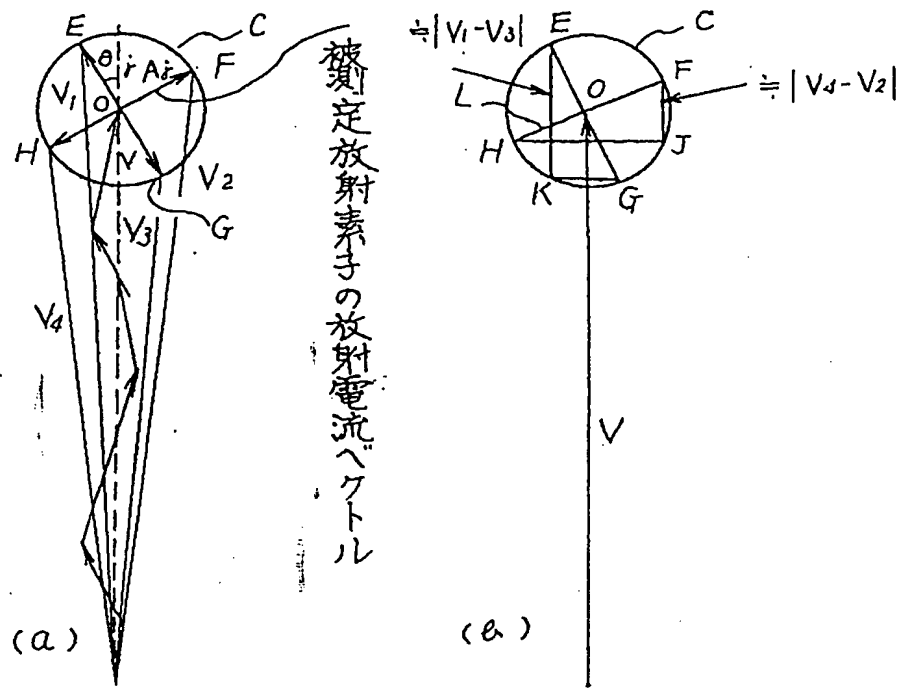 E
C
F
θ
V1
O
H
V
V2
V3
G
V4
被測定放射素子の放射電流ベクトル
(a)
≒|V1-V3|
E
C
F
O
L
≒|V4-V2|
H
J
K
G
V
(b)